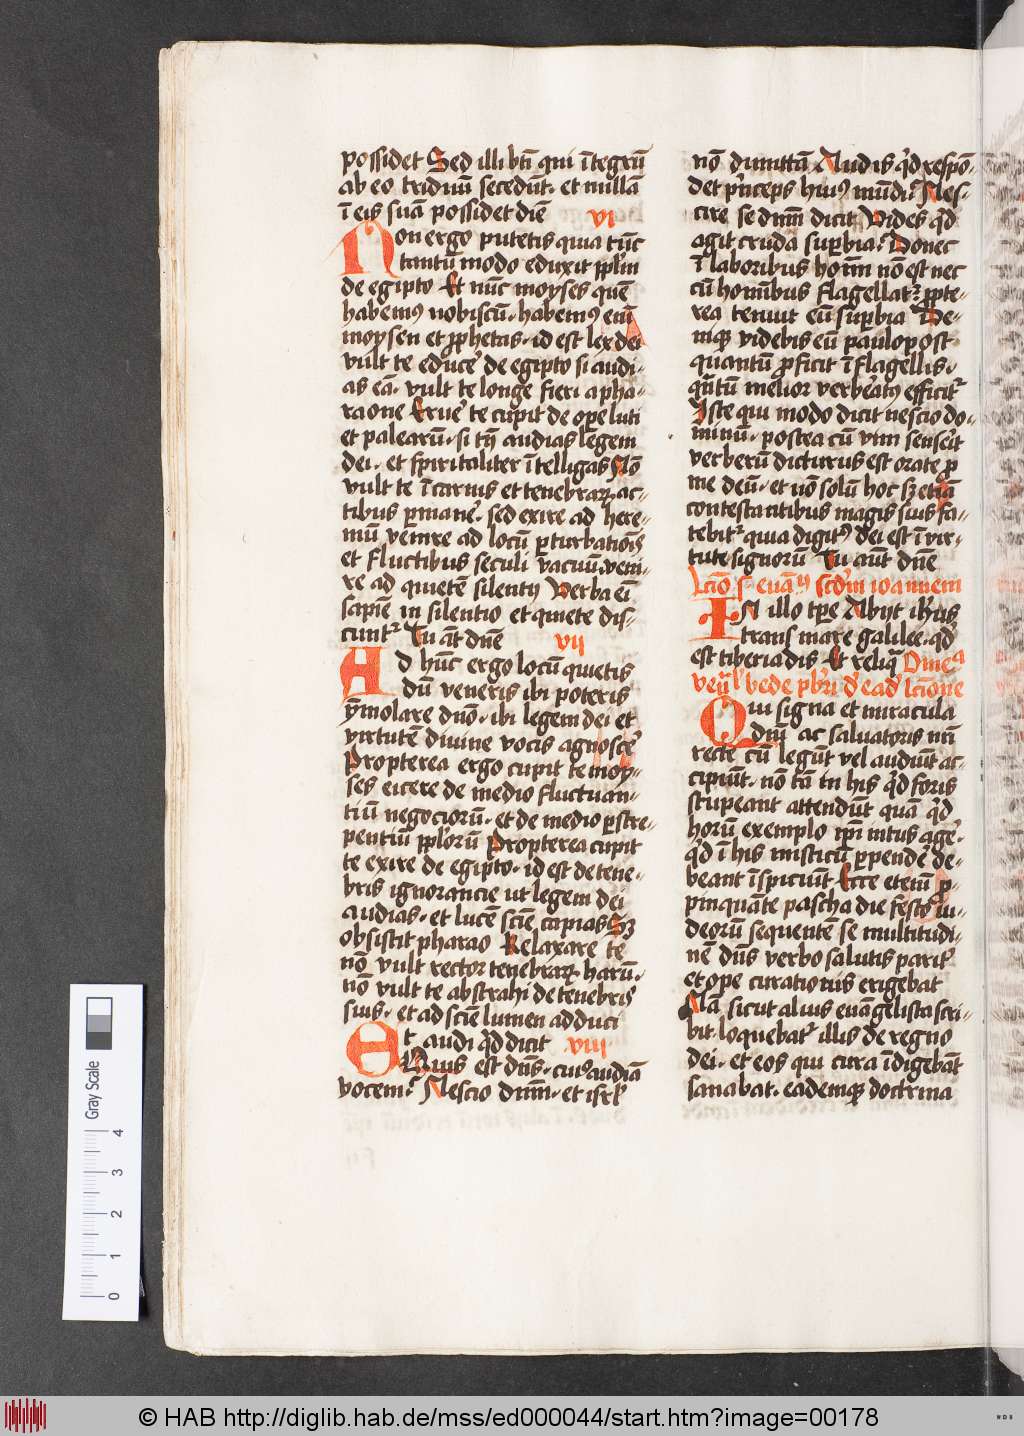 possidet Sed illi bti qui ītegrū
ab eo triduū secedūt · et nullā
ī eis suā possidet diē
vi
Non ergo putetis quia tūc
tantū modo eduxit pplm
de egipto Et nūc moyses quē
habemꝰ nobiscū · habemꝰ em̄
moysen et prophetas · id est lex dei
vult te educeˀ de egipto si audi-
as eā · vult te longe fieri a pha-
raone Erueˀ te cupit de ope luti
et palearū · si tn̄ audias legem
dei · et spiritaliter ītelligas Nō
vult te ī carnis et tenebraꝝ ac-
tibus pmaneˀ sed exire ad here-
mū venire ad locū pturbatiōis
et fluctibus seculi vacuū veni-
re ad quietē silentij Verba em̄
sapiē in silentio et quiete dis-
cuntꝭ Tu āt dn̄e
vii
Ad hūc ergo locū quietis
dū veneris ibi poteris
ȳmolare dn̄o · ibi legem dei et
virtutē divine vocis agnosceˀ
Propterea ergo cupit te moy-
ses eicere de medio fluctuan-
tiū negociorū · et de medio pstre-
pentiū pplorū Propterea cupit
te exire de egipto · id est de tene-
bris ignorancie ut legem dei
audias · et lucē scīe capias Sꝫ
obsistit pharao Relaxare te
nō vult rector tenebraꝝ harū ·
nō vult te abstrahi de tenebris
suis · et ad scīe lumen adduci
Et audi qd dicit viii
Quis est dn̄s · cuiꝰ audiā
vocem Nescio dnm · et isrl
nō dimittā Audis qd respō-
det princeps huiꝰ mūdi Nes-
cire se dnm dicit Vides qd
agit cruda supbia Donec
ī laboribus hoīm nō est nec
cū hominibus flagellatꝭ ppte-
rea tenuit eū supbia De-
niqꝫ videbis eū paulo post
quantū pficit ī flagellis ·
qntū melior verberatꝰ efficitꝭ
Iste qui modo dicit nescio do-
minū · postea cū vim senseˀit
verberū dicturus est orate p
me deū · et nō solū hoc sꝫ etiā
contestantibus magis suis fa-
tebitꝭ quia digitꝰ dei est ī vir-
tute signorū Tu aūt dn̄e
Lcīo s euāij scdm ioannem
In illo tpe Abijt ihus
trans mare galilee qd
est tiberiadis Et reliqa Omea
venl bede pbri d' ead' lcīone
Qui signa et miracula
dnī ac salvatoris nri
recte cū legūt vel audiūt ac-
cipiūt · nō tā in his qd foris
stupeant attendūt quā qd
horū exemplo ipi intus ageˀ ·
qd ī his misticū ppendeˀ de-
beant īspiciūt Ecce etenī p-
pinquāte pascha die festo iu-
deorū sequentē se multitudi-
nē dn̄s verbo salutis paritˀ
et ope curationis erigebat
Nā sicut alius euāgelista scri-
bit · loquebatꝭ illis de regno
dei · et eos qui cura īdigebāt
sanabat · eademqꝫ doctrina
Gray Scale
0 1 2 3 4
© HAB http://diglib.hab.de/mss/ed000044/start.htm?image=00178